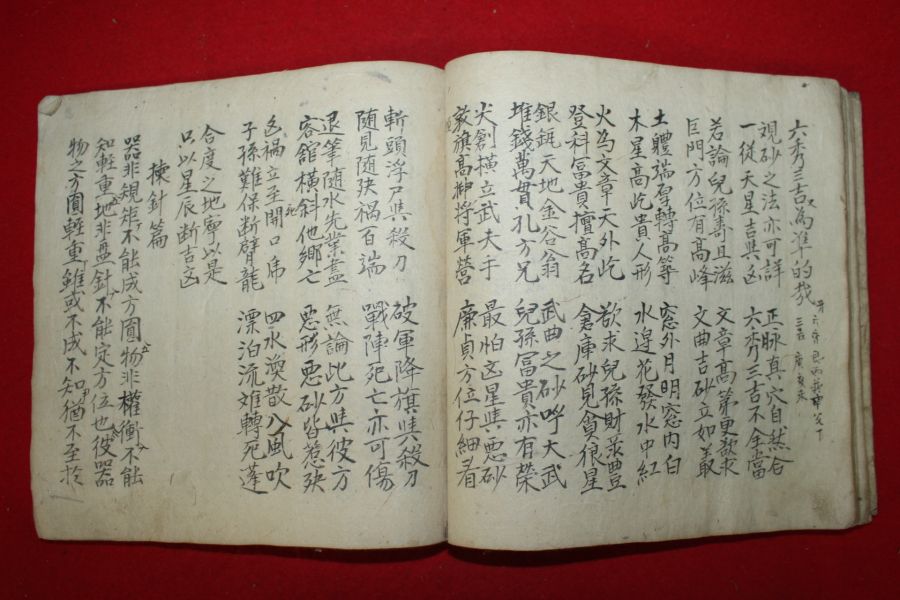 六秀三吉奚爲準的哉
六秀 艮丙辛巽
三吉 庚亥
覌砂之法亦可詳 正脉真穴自然合
一從天星吉與凶 六秀三吉不全當
若論兒孫壽且滋 文章高第更欲求
巨門方位有高峰 文曲吉砂立如
土軆端厚轉高等 窓外月明窓內白
木星高屹貴人形 水邊花發水中紅
火为文章天外屹 欲求兒孫財豊
登科冨貴擅高名 倉庫砂見貪狼星
銀瓶天地金谷翁 武曲之砂呼大武
堆錢萬貫孔方兄 兒孫冨貴亦有榮
尖創橫立武夫手 最怕凶星與惡砂
旗高柳將軍營 廉貞方位仔細看
斬頭浮尸與殺刀 破軍降旗與殺刀
随見随殃禍百端 戰陣死亡亦可傷
退筆随水先業盡 無論比方與彼方
客舘橫斜他鄉亡 惡形惡砂皆惹殃
凶禍立至開口虎 四水渙散八風吹
子孫難保断臂龍 漂泊流难轉死蓬
合度之地寧以是
只以星辰断吉凶
楝針篇
器非規矩不能成方圓物非權衡不能
知輕重地非盘針不能定方位也彼器
物之方圓輕重雖或不成不知猶不至於